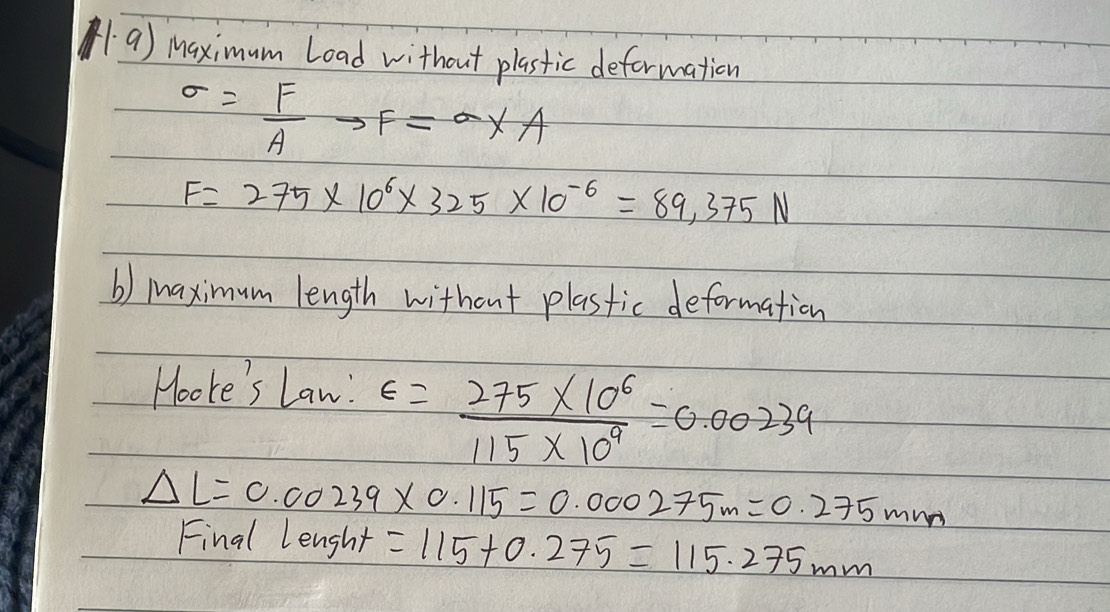 1. a) Maximum Load without plastic deformation
σ = F/A → F = σ × A
F = 275 × 10⁶ × 325 × 10⁻⁶ = 89,375 N
b) Maximum length without plastic deformation
Hooke's Law: ε = 275 × 10⁶ / 115 × 10⁹ = 0.00239
ΔL = 0.00239 × 0.115 = 0.000275m = 0.275mm
Final lenght = 115 + 0.275 = 115.275mm